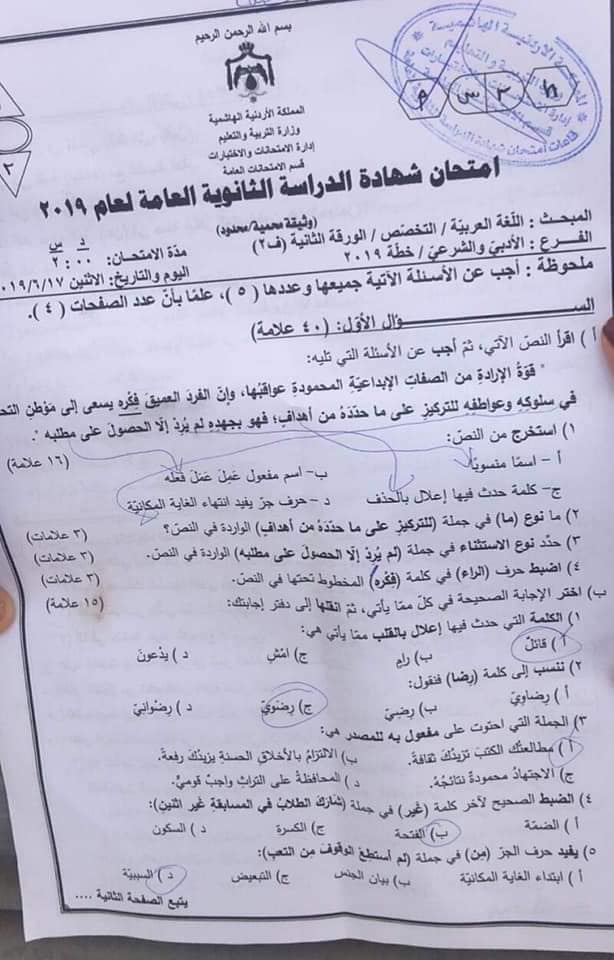 بسم الله الرحمن الرحيم
المملكة الأردنية الهاشمية
وزارة التربية والتعليم
إدارة الامتحانات والاختبارات
قسم الامتحانات العامة
٩ س ٢ h
٢
امتحان شهادة الدراسة الثانوية العامة لعام ٢٠١٩
(وثيقة محمية/محدود)
المبحث : اللّغة العربيّة / التخصّص / الورقة الثانية (ف٢)
د س
مدّة الامتحان: ٠٠ : ٢
الفرع: الأدبيّ والشرعيّ / خطّة ٢٠١٩
اليوم والتاريخ: الاثنين ٢٠١٩/٦/١٧
ملحوظة : أجب عن الأسئلة الآتية جميعها وعددها (٥)، علمًا بأنّ عدد الصفحات (٤).
السـؤال الأوّل: (٤٠ علامة)
أ ) اقرأ النصّ الآتي، ثمّ أجب عن الأسئلة التي تليه:
" قوّة الإرادةِ من الصفاتِ الإبداعيّةِ المحمودةِ عواقبُها، وإنّ الفردَ العميقَ فكره يسعى إلى مَوْطنِ
في سلوكِه وعواطفِه للتركيزِ على ما حدّدَهُ من أهدافٍ؛ فهو بجهدِهِ لم يُرِدْ إلّا الحصولَ على مطلبه ".
١) استخرج من النصّ:
(١٦ علامة)
أ – اسمًا منسوبًا
ب– اسم مفعول عَمِلَ عَمَلَ فعْلِه
ج– كلمة حدث فيها إعلال بالحذف
د – حرف جرّ يفيد انتهاء الغاية المكانيّة
٢) ما نوع (ما) في جملة (للتركيزِ على ما حدّدَهُ من أهدافٍ) الواردة في النصّ؟ (٣ علامات)
٣) حدِّد نوع الاستثناء في جملة (لم يُرِدْ إلّا الحصولَ على مطلبه) الواردة في النصّ. (٣ علامات)
٤) اضبط حرف (الراء) في كلمة (فكره) المخطوط تحتها في النصّ. (٣ علامات)
ب) اختر الإجابة الصحيحة في كلّ ممّا يأتي، ثمّ انقلها إلى دفتر إجابتك: (١٥ علامة)
١) الكلمة التي حدث فيها إعلال بالقلب ممّا يأتي هي:
أ ) قائلٌ ب) رامٍ ج) امْشِ د ) يدْعونَ
٢) ننسب إلى كلمة (رِضا) فنقول:
أ ) رِضاوِيّ ب) رِضِيّ ج) رِضَوِيّ د ) رِضْوانِيّ
٣) الجملة التي احتوت على مفعول به للمصدر هي:
أ ) مطالعتُك الكتبَ تزيدُكَ ثقافةً. ب) الالتزامُ بالأخلاقِ الحسنةِ يزيدُكَ رفعةً.
ج) الاجتهادُ محمودةٌ نتائجُهُ. د ) المحافظةُ على التراثِ واجبٌ قوميٌّ.
٤) الضبط الصحيح لآخر كلمة (غير) في جملة (شاركَ الطلّابُ في المسابقةِ غير اثنينِ):
أ ) الضمّة ب) الفتحة ج) الكسرة د ) السكون
٥) يفيد حرف الجرّ (مِن) في جملة (لم أستطعِ الوقوفَ مِن التعبِ):
أ ) ابتداء الغاية المكانيّة ب) بيان الجنس ج) التبعيض د ) السببيّة
يتبع الصفحة الثانية ....